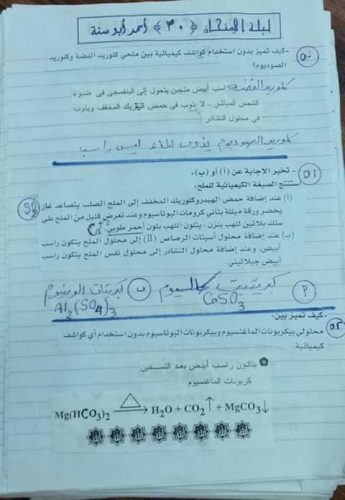 ليلة الامتحان (٣٠) أحمد أبو سنة
٥٠
-كيف تميز بدون استخدام كواشف كيميائية بين ملحي كلوريد الفضة وكلوريد
الصوديوم؟
كلوريد الفضة راسب أبيض متجبن يتحول إلى البنفسجي في ضوء
الشمس المباشر - لا يذوب في حمض النيتريك المخفف ويذوب
في محلول النشادر
كلوريد الصوديوم يذوب في الماء ليس راسب
٥١
- تخير الإجابة عن (أ) أو (ب)،
استنتج الصيغة الكيميائية للملح:
(أ) عند إضافة حمض الهيدروكلوريك المخفف إلى الملح الصلب يتصاعد غاز
يخضر ورقة مبللة بثاني كرومات البوتاسيوم وعند تعرض قليل من الملح على
سلك بلاتين للهب بنزن، يتلون اللهب بلون أحمر طوبي.
(ب) عند إضافة محلول أسيتات الرصاص (II) إلى محلول الملح يتكون راسب
أبيض، وعند إضافة محلول النشادر إلى محلول نفس الملح يتكون راسب
أبيض جيلاتيني.
P كبريتيت كالسيوم ب كبريتات الومنيوم
CaSO3 Al2(SO4)3
-كيف تميز بين:
محلولي بيكربونات الماغنسيوم وبيكربونات البوتاسيوم بدون استخدام أي كواشف
كيميائية.
يتكون راسب أبيض بعد التسخين
كربونات الماغنسيوم
Mg(HCO3)2 → H2O + CO2↑ + MgCO3↓